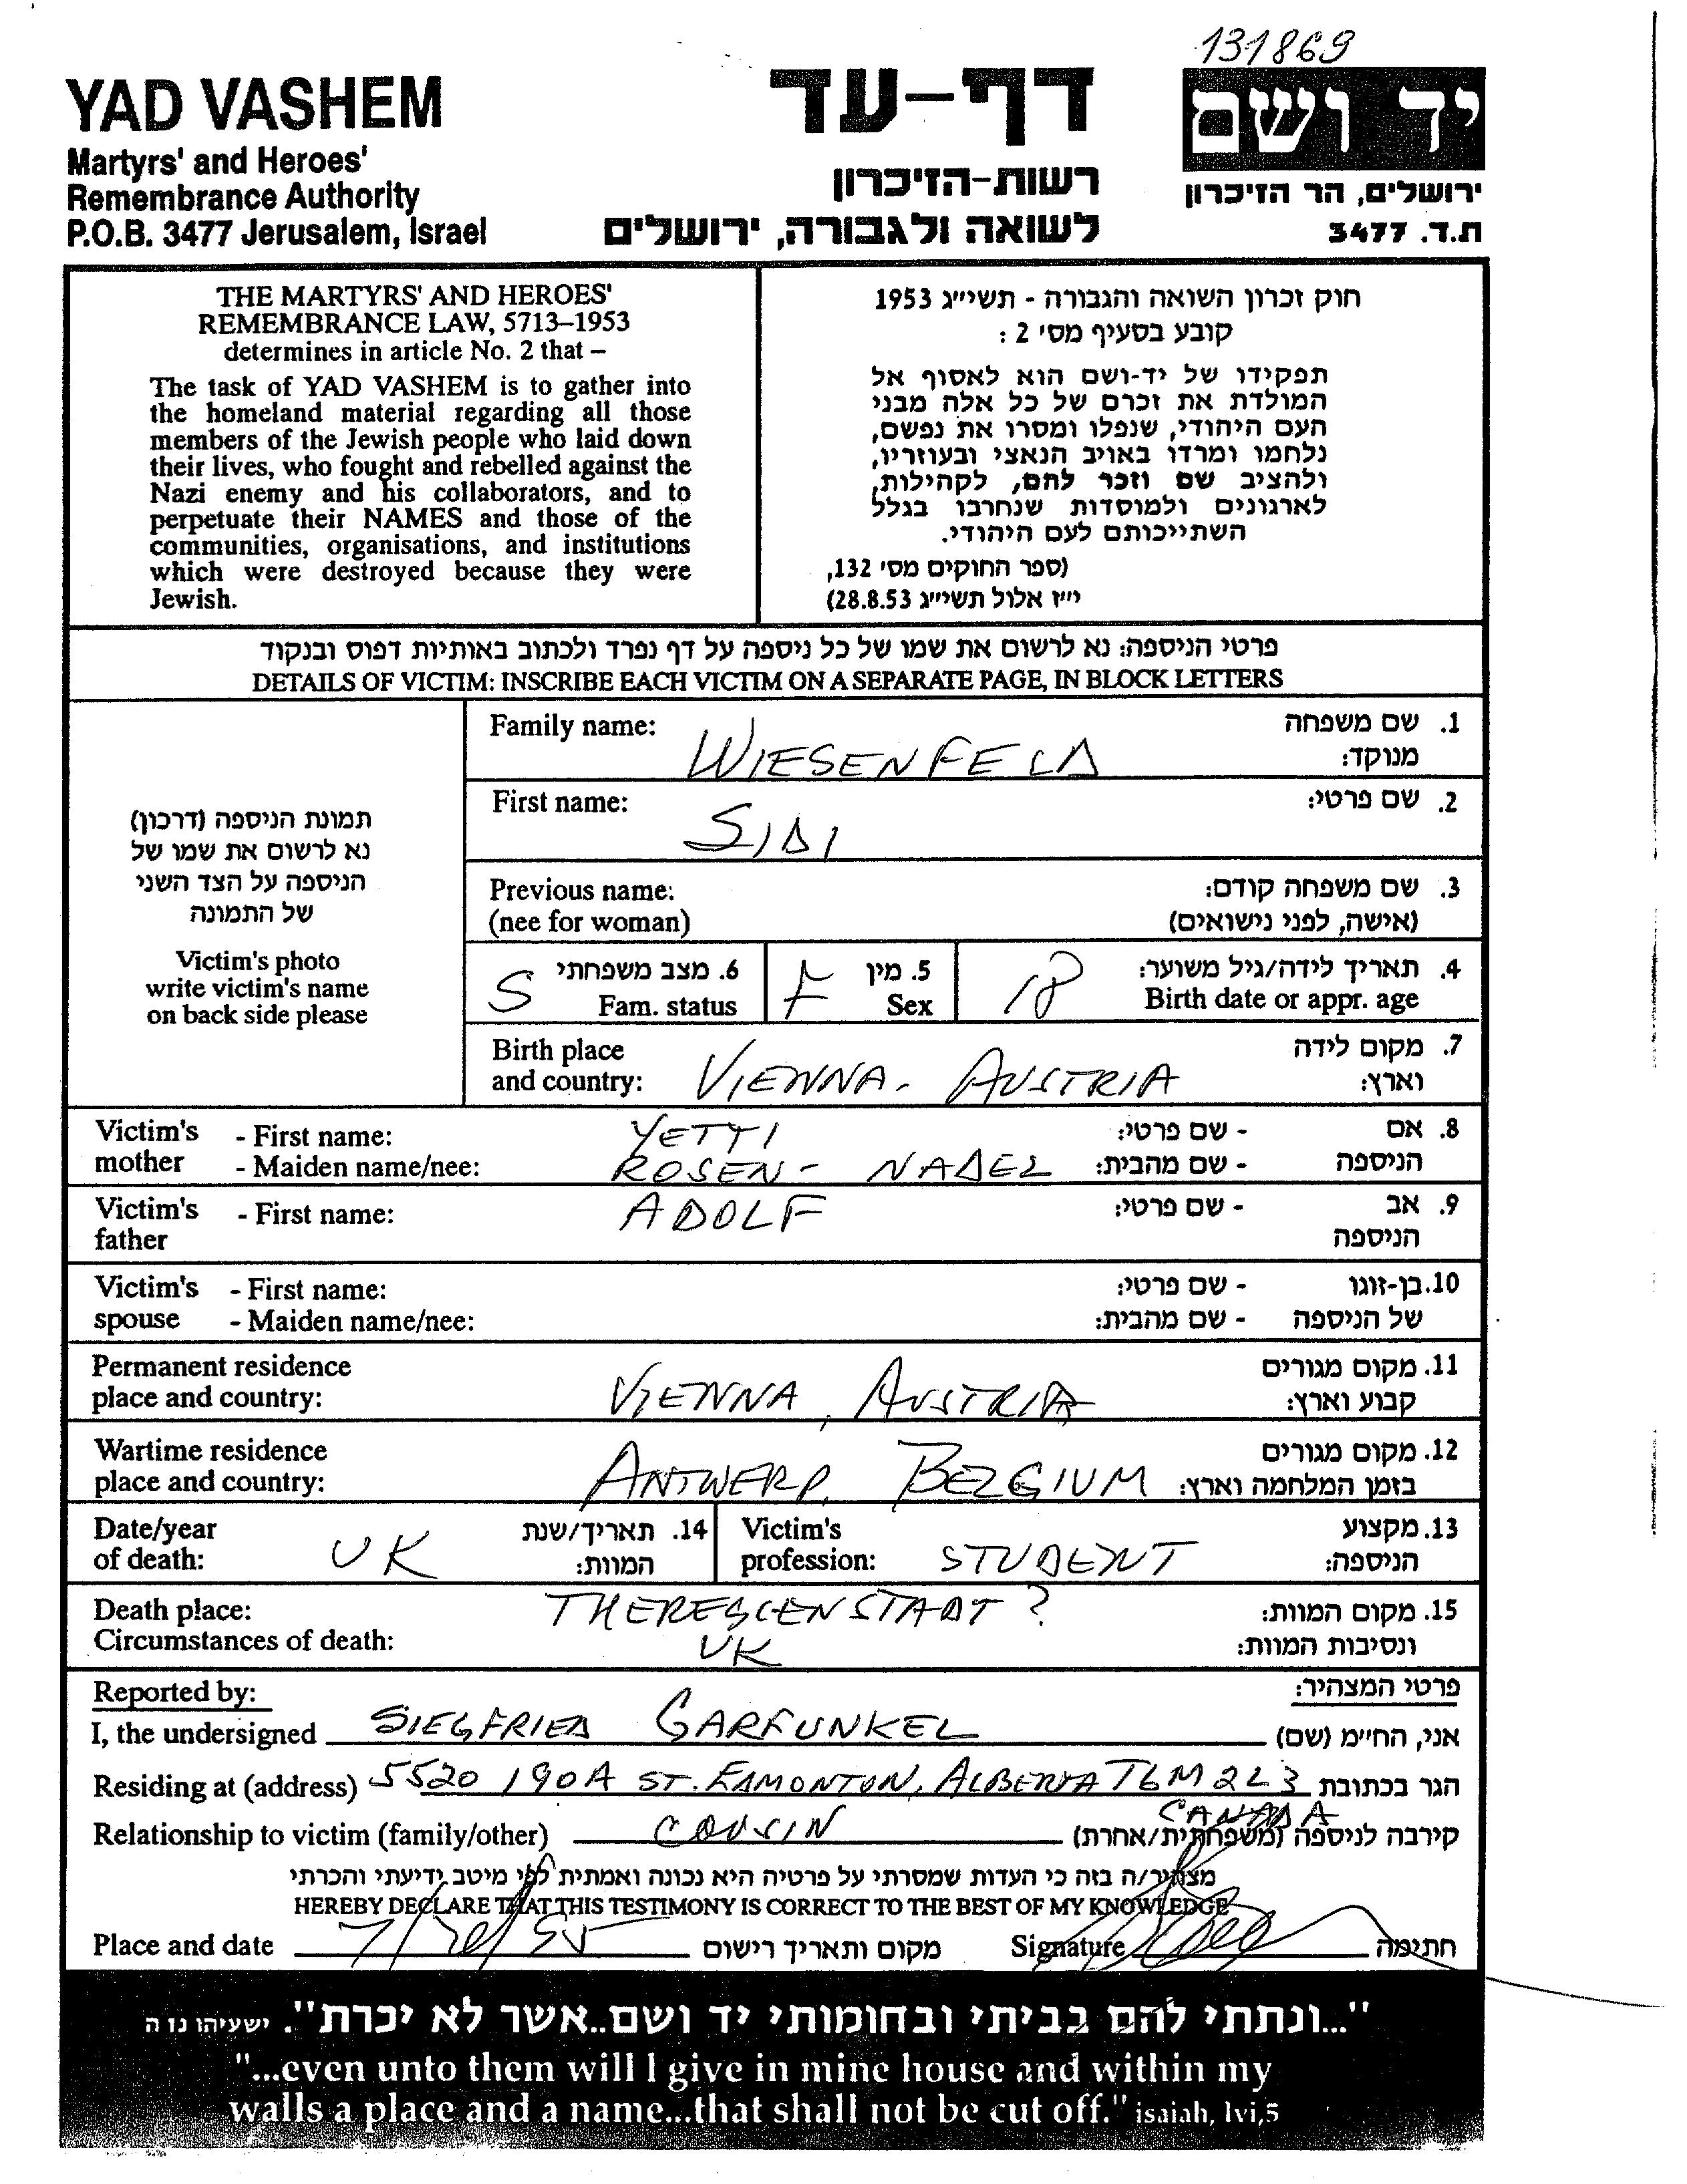 131869
YAD VASHEM
Martyrs' and Heroes'
Remembrance Authority
P.O.B. 3477 Jerusalem, Israel
דף-עד
רשות-הזיכרון
לשואה ולגבורה, ירושלים
יד ושם
ירושלים, הר הזיכרון
ת.ד. 3477
THE MARTYRS' AND HEROES'
REMEMBRANCE LAW, 5713–1953
determines in article No. 2 that –
The task of YAD VASHEM is to gather into
the homeland material regarding all those
members of the Jewish people who laid down
their lives, who fought and rebelled against the
Nazi enemy and his collaborators, and to
perpetuate their NAMES and those of the
communities, organisations, and institutions
which were destroyed because they were
Jewish.
חוק זכרון השואה והגבורה - תשי״ג 1953
קובע בסעיף מס׳ 2 :
תפקידו של יד-ושם הוא לאסוף אל
המולדת את זכרם של כל אלה מבני
העם היהודי, שנפלו ומסרו את נפשם,
נלחמו ומרדו באויב הנאצי ובעוזריו,
ולהציב שם וזכר להם, לקהילות,
לארגונים ולמוסדות שנחרבו בגלל
השתייכותם לעם היהודי.
(ספר החוקים מס׳ 132,
י״ז אלול תשי״ג 28.8.53)
פרטי הניספה: נא לרשום את שמו של כל ניספה על דף נפרד ולכתוב באותיות דפוס ובנקוד
DETAILS OF VICTIM: INSCRIBE EACH VICTIM ON A SEPARATE PAGE, IN BLOCK LETTERS
תמונת הניספה (דרכון)
נא לרשום את שמו של
הניספה על הצד השני
של התמונה
Victim's photo
write victim's name
on back side please
Family name: WIESENFELD 1. שם משפחה
מנוקד:
First name: SIDI 2. שם פרטי:
Previous name: 3. שם משפחה קודם:
(nee for woman) (אישה, לפני נישואים)
S 6. מצב משפחתי F 5. מין 18 4. תאריך לידה/גיל משוער:
Fam. status Sex Birth date or appr. age
Birth place 7. מקום לידה
and country: VIENNA - AUSTRIA וארץ:
Victim's - First name: YETTI - שם פרטי: 8. אם
mother - Maiden name/nee: ROSEN - NADEL - שם מהבית: הניספה
Victim's - First name: ADOLF - שם פרטי: 9. אב
father הניספה
Victim's - First name: - שם פרטי: 10. בן-זוגו
spouse - Maiden name/nee: - שם מהבית: של הניספה
Permanent residence 11. מקום מגורים
place and country: VIENNA, AUSTRIA קבוע וארץ:
Wartime residence 12. מקום מגורים
place and country: ANTWERP, BELGIUM בזמן המלחמה וארץ:
Date/year 14. תאריך/שנת Victim's 13. מקצוע
of death: UK המוות: profession: STUDENT הניספה:
Death place: THERESCENSTADT ? 15. מקום המוות:
Circumstances of death: UK ונסיבות המוות:
Reported by: פרטי המצהיר:
I, the undersigned SIEGFRIED GARFUNKEL אני, החי״מ (שם)
Residing at (address) 5520 190A ST. EDMONTON, ALBERTA T6M 2L3 הגר בכתובת
CANADA
Relationship to victim (family/other) COUSIN קירבה לניספה (משפחתית/אחרת)
מצהיר/ה בזה כי העדות שמסרתי על פרטיה היא נכונה ואמתית לפי מיטב ידיעתי והכרתי
HEREBY DECLARE THAT THIS TESTIMONY IS CORRECT TO THE BEST OF MY KNOWLEDGE
Place and date מקום ותאריך רישום Signature חתימה
"...ונתתי להם בביתי ובחומותי יד ושם..אשר לא יכרת". ישעיהו נו ה
"...even unto them will I give in mine house and within my
walls a place and a name...that shall not be cut off." isaiah, lvi,5